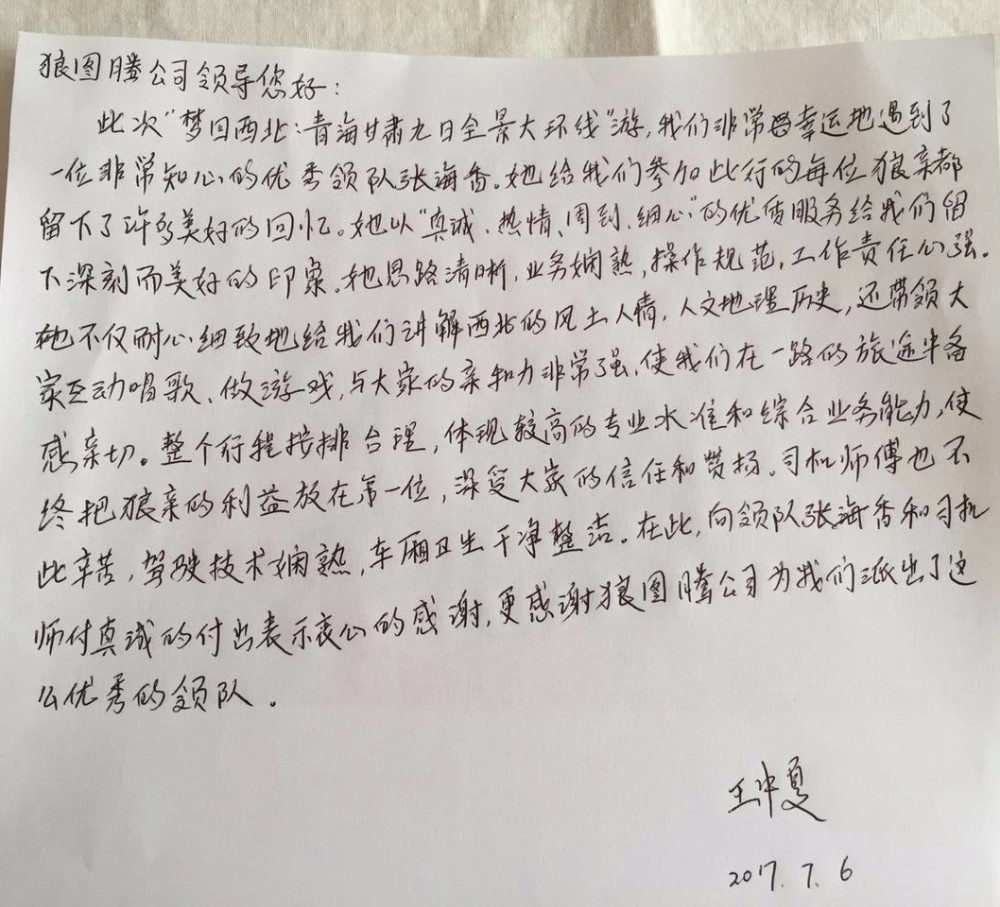 狼图腾公司领导您好:
此次“梦回西北:青海甘肃九日全景大环线”游,我们非常幸运地遇到了
一位非常知心的优秀领队张海香。她给我们参加此行的每位狼亲都
留下了许多美好的回忆。她以“真诚、热情、周到、细心”的优质服务给我们留
下深刻而美好的印象。她思路清晰,业务娴熟,操作规范,工作责任心强。
她不仅耐心细致地给我们讲解西北的风土人情,人文地理历史,还带领大
家互动唱歌、做游戏,与大家的亲和力非常强,使我们在一路的旅途中备
感亲切。整个行程按排合理,体现较高的专业水准和综合业务能力,使
终把狼亲的利益放在第一位,深受大家的信任和赞扬。司机师傅也不
此辛苦,驾驶技术娴熟,车厢卫生干净整洁。在此,向领队张海香和司机
师付真诚的付出表示衷心的感谢,更感谢狼图腾公司为我们派出了这
么优秀的领队。
王中夏
2017.7.6